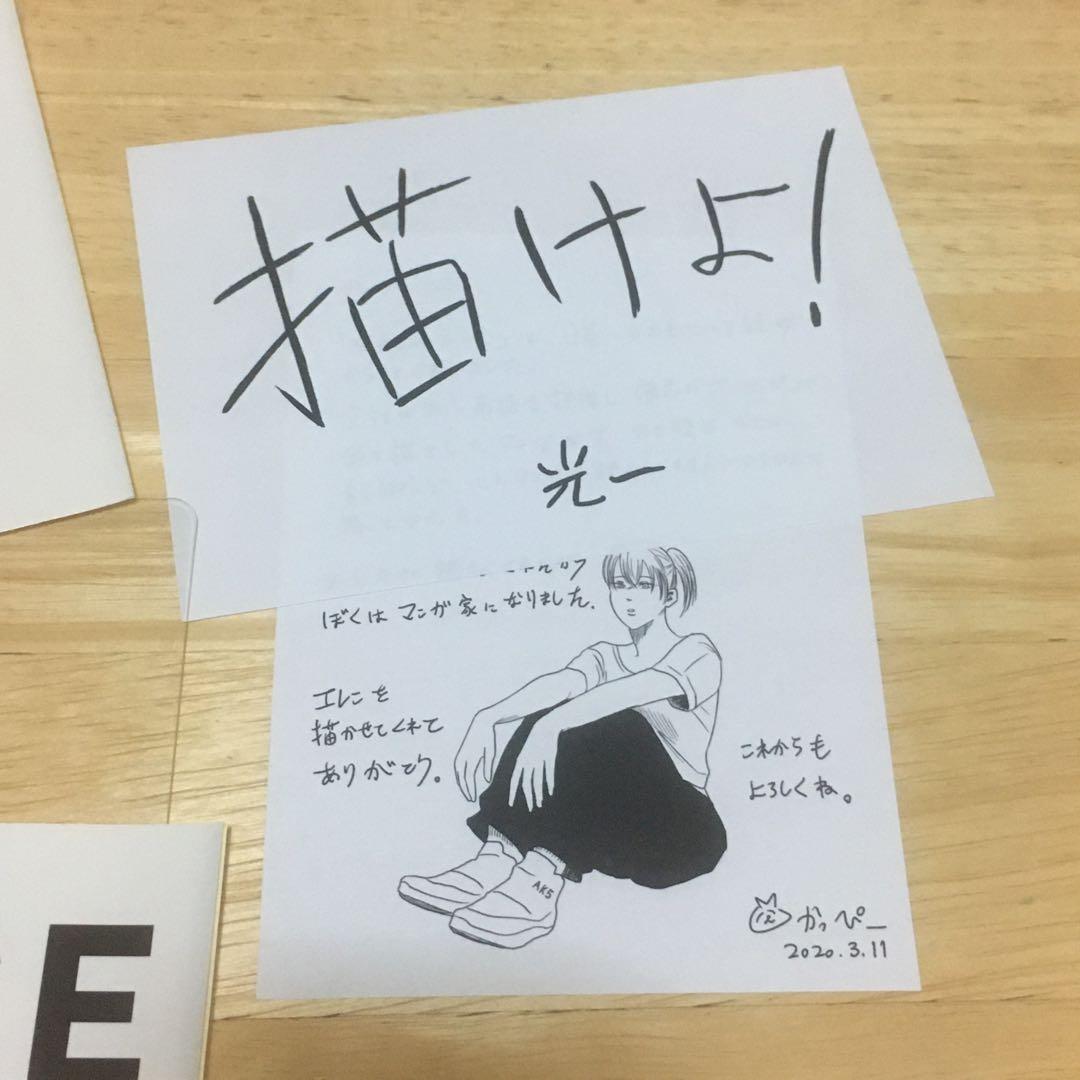 描けよ!
光一
ぼくは マンガ家になりました.
エレンを
描かせてくれて
ありがとう。
これからも
よろしくね。
AKS
かっぴー
2020.3.11
E